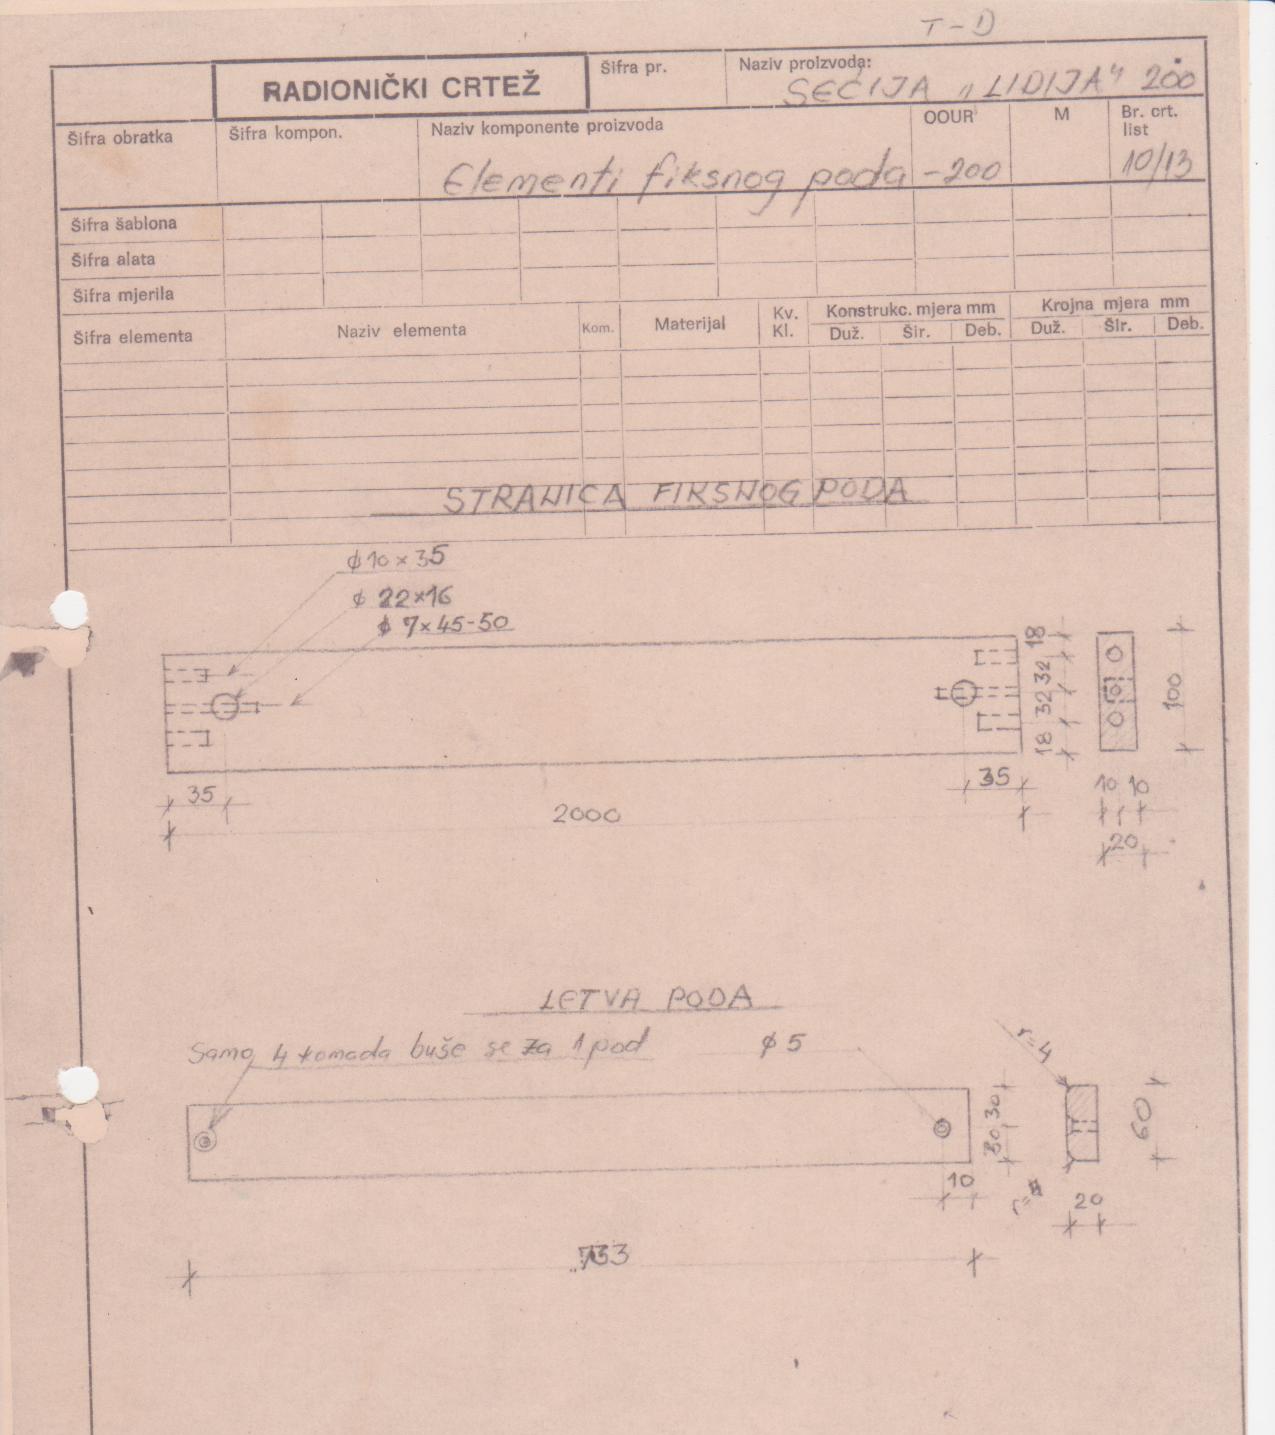 T-D
RADIONIČKI CRTEŽ
Šifra pr.
Naziv proizvoda:
SEĆIJA „LIDIJA" 200
Šifra obratka
Šifra kompon.
Naziv komponente proizvoda
OOUR
M
Br. crt. list
Elementi fiksnog poda -200
10/13
Šifra šablona
Šifra alata
Šifra mjerila
Šifra elementa
Naziv elementa
Kom.
Materijal
Kv. Kl.
Konstrukc. mjera mm
Krojna mjera mm
Duž. Šir. Deb. Duž. Šir. Deb.
STRANICA FIKSNOG PODA
ϕ10×35
ϕ 22×16
ϕ 7×45-50
18 32 32 18
100
35
35
2000
10 10
20
LETVA PODA
Samo 4 komada buše se za 1 pod
ϕ 5
r=4
30 30
60
10
r=
20
733